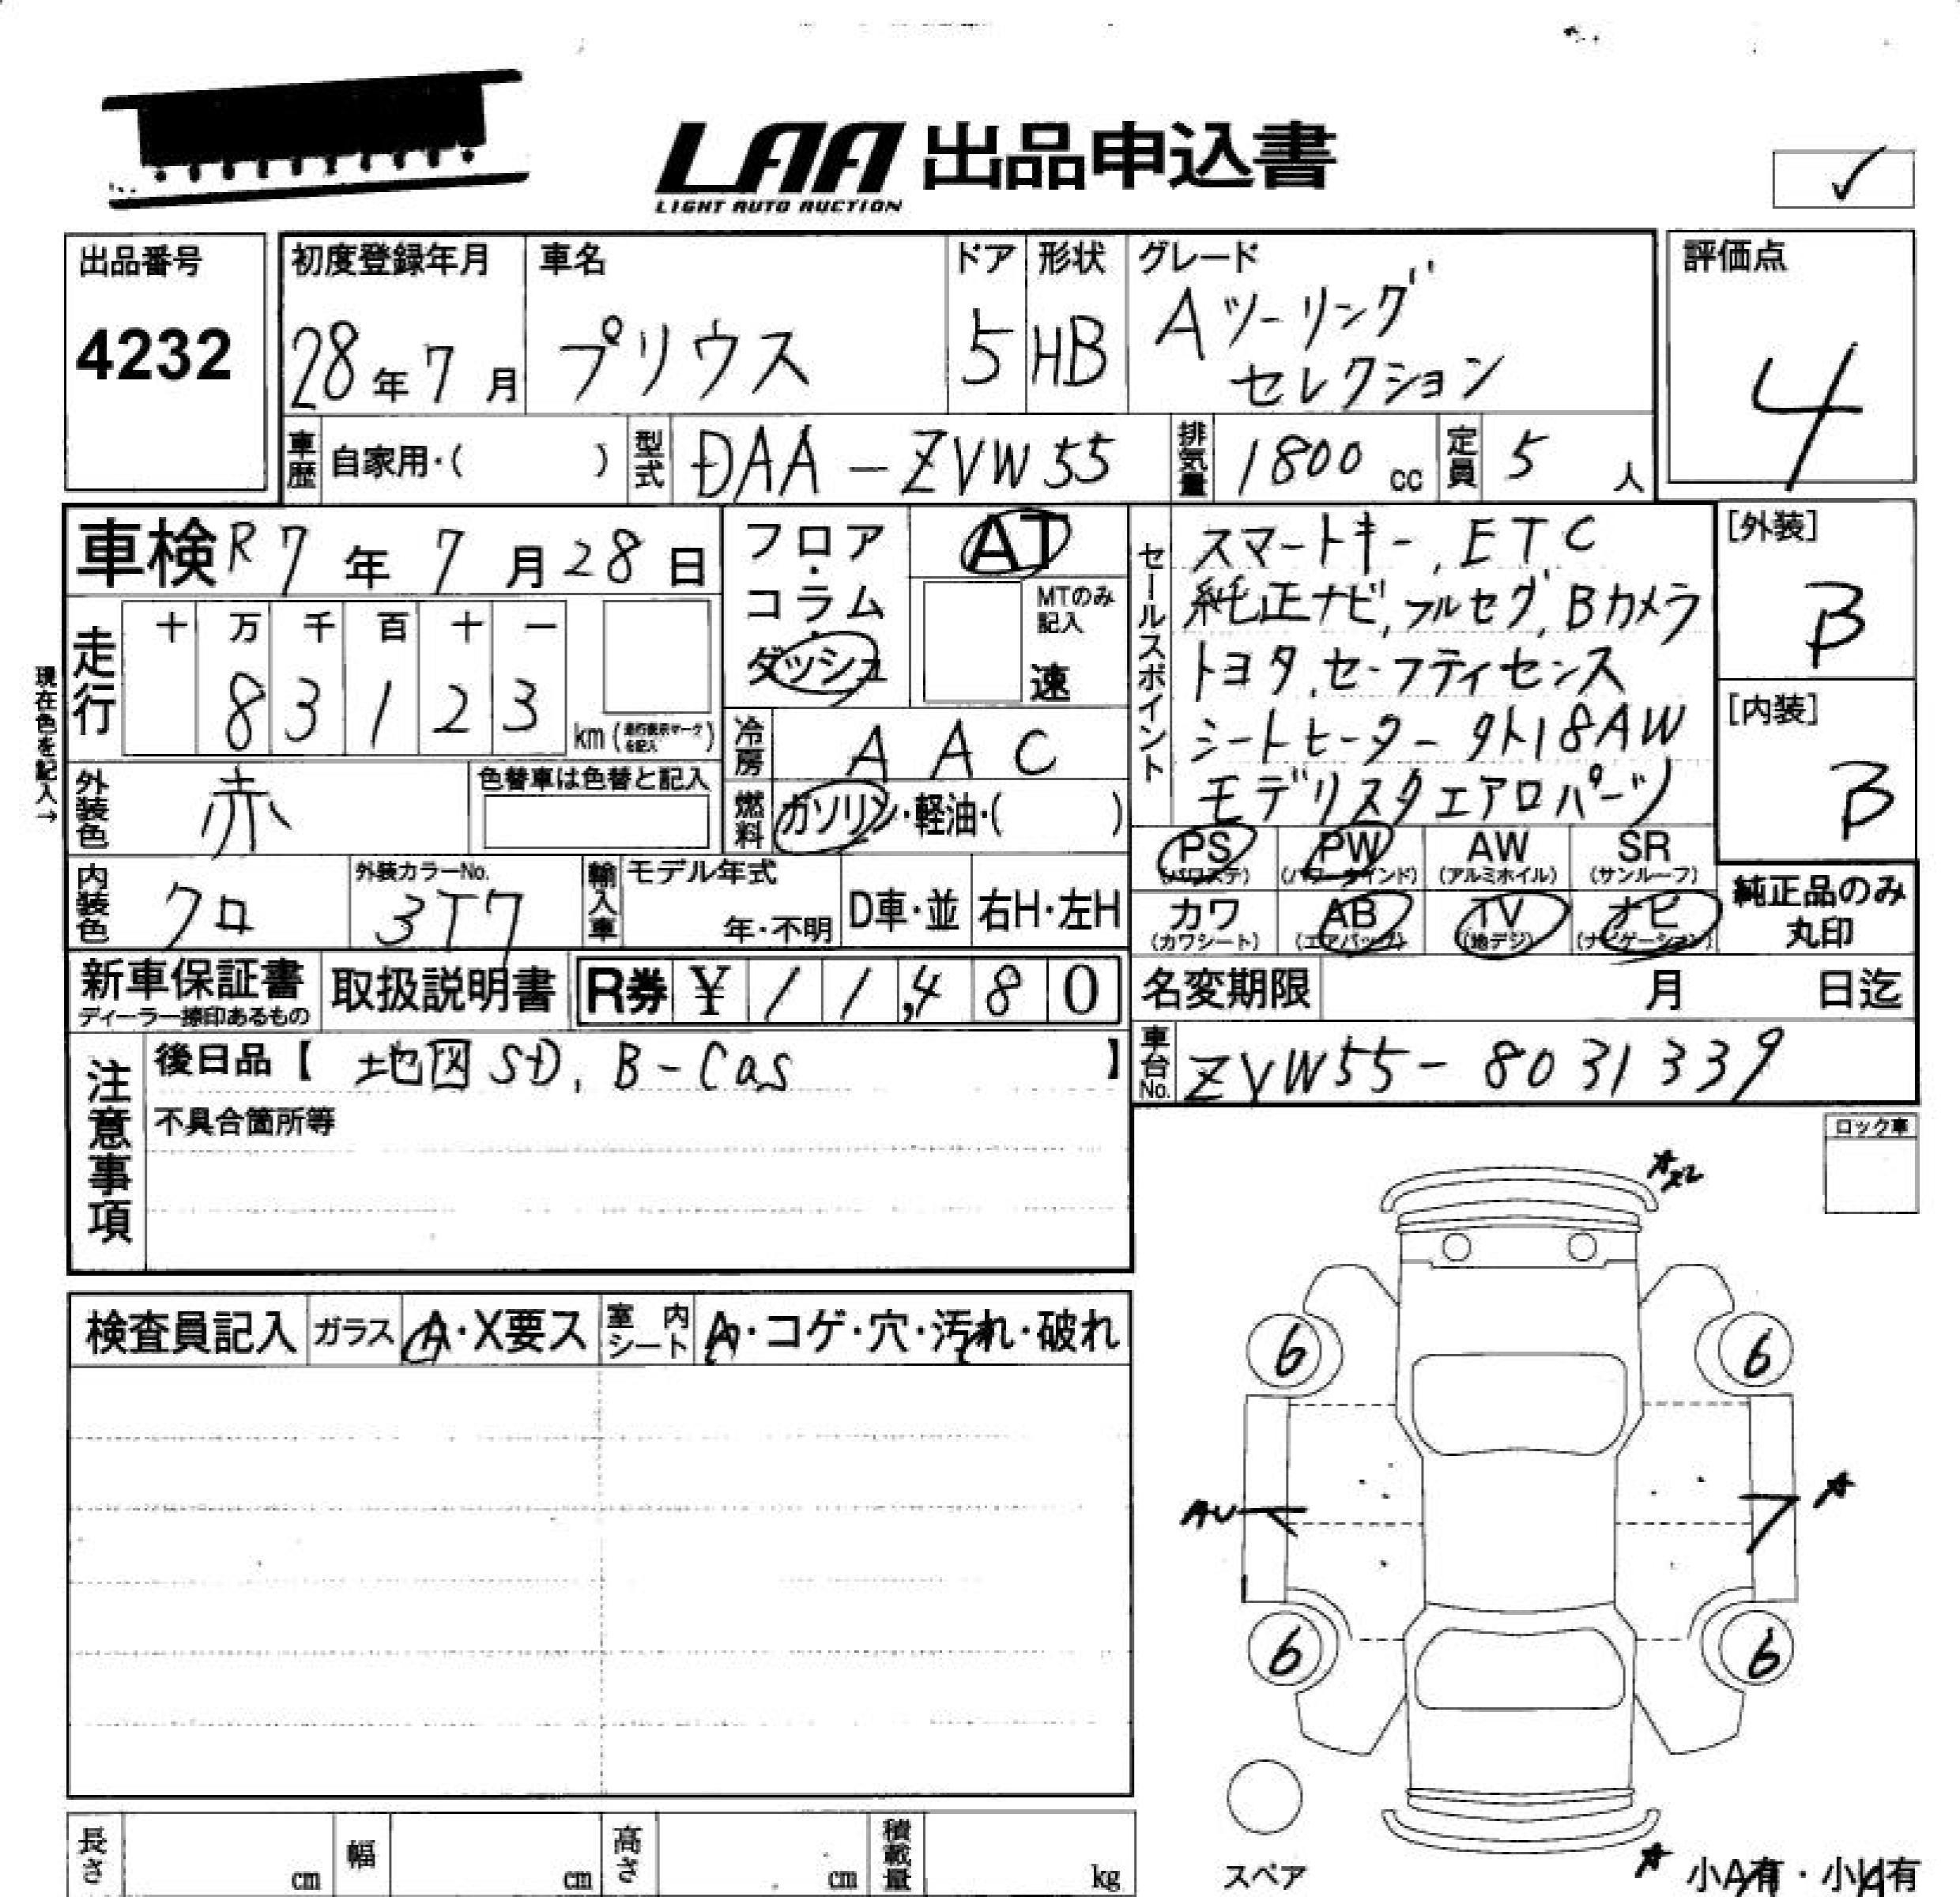 LAA 出品申込書
LIGHT AUTO AUCTION
✓
出品番号
4232
初度登録年月
28年7月
車名
プリウス
ドア
5
形状
HB
グレード
Aツーリング
セレクション
評価点
4
車歴 自家用・( )
型式 DAA-ZVW55
排気量 1800 cc
定員 5 人
車検 R7年7月28日
フロア・コラム・ダッシュ
AT
MTのみ記入
速
走行
十 万 千 百 十 一
8 3 1 2 3
km (走行表示マークを記入)
現在色を記入→
冷房 AAC
燃料 ガソリン・軽油・( )
外装色 赤
色替車は色替と記入
内装色 クロ
外装カラーNo.
3T7
輸入車 モデル年式
年・不明
D車・並
右H・左H
セールスポイント
スマートキー, ETC
純正ナビ, フルセグ, Bカメラ
トヨタ,セーフティセンス
シートヒーター 外18AW
モデリスタエアロパーツ
[外装]
B
[内装]
B
PS
(パワステ)
PW
(パワーウインド)
AW
(アルミホイル)
SR
(サンルーフ)
カワ
(カワシート)
AB
(エアバッグ)
TV
(地デジ)
ナビ
(ナビゲーション)
純正品のみ
丸印
新車保証書
ディーラー捺印あるもの
取扱説明書
R券 ¥ 11,480
名変期限 月 日迄
車台No. ZVW55-8031339
注意事項
後日品【 地図SD, B-Cas 】
不具合箇所等
ロック車
検査員記入
ガラス A・X要ス
室内シート A・コゲ・穴・汚れ・破れ
A
6
6
AU
A
6
6
スペア
A 小A有・小U有
長さ cm
幅 cm
高さ cm
積載量 kg